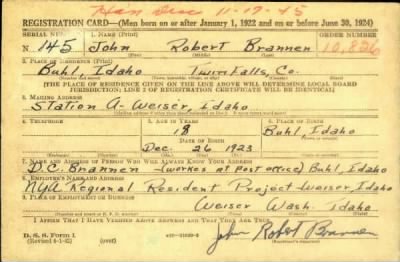 Hon Disc 11-17-45
REGISTRATION CARD—(Men born on or after January 1, 1922 and on or before June 30, 1924)
SERIAL NUMBER 1. NAME (Print) ORDER NUMBER
N 145 John Robert Brannen 10,826
(First) (Middle) (Last)
2. PLACE OF RESIDENCE (Print)
Buhl, Idaho Twin Falls, Co.
[THE PLACE OF RESIDENCE GIVEN ON THE LINE ABOVE WILL DETERMINE LOCAL BOARD
JURISDICTION; LINE 2 OF REGISTRATION CERTIFICATE WILL BE IDENTICAL]
3. MAILING ADDRESS
Station A- Weiser, Idaho
4. TELEPHONE 5. AGE IN YEARS 6. PLACE OF BIRTH
18 Buhl,
DATE OF BIRTH
Dec. 26 1923 Idaho
7. NAME AND ADDRESS OF PERSON WHO WILL ALWAYS KNOW YOUR ADDRESS
D.C. Brannen (works at post office) Buhl, Idaho
8. EMPLOYER'S NAME AND ADDRESS
NYA Regional Resident Project-Weiser, Idaho
9. PLACE OF EMPLOYMENT OR BUSINESS
Weiser Wash. Idaho
I AFFIRM THAT I HAVE VERIFIED ABOVE ANSWERS AND THAT THEY ARE TRUE.
D. S. S. Form 1
(over)
John Robert Brannen